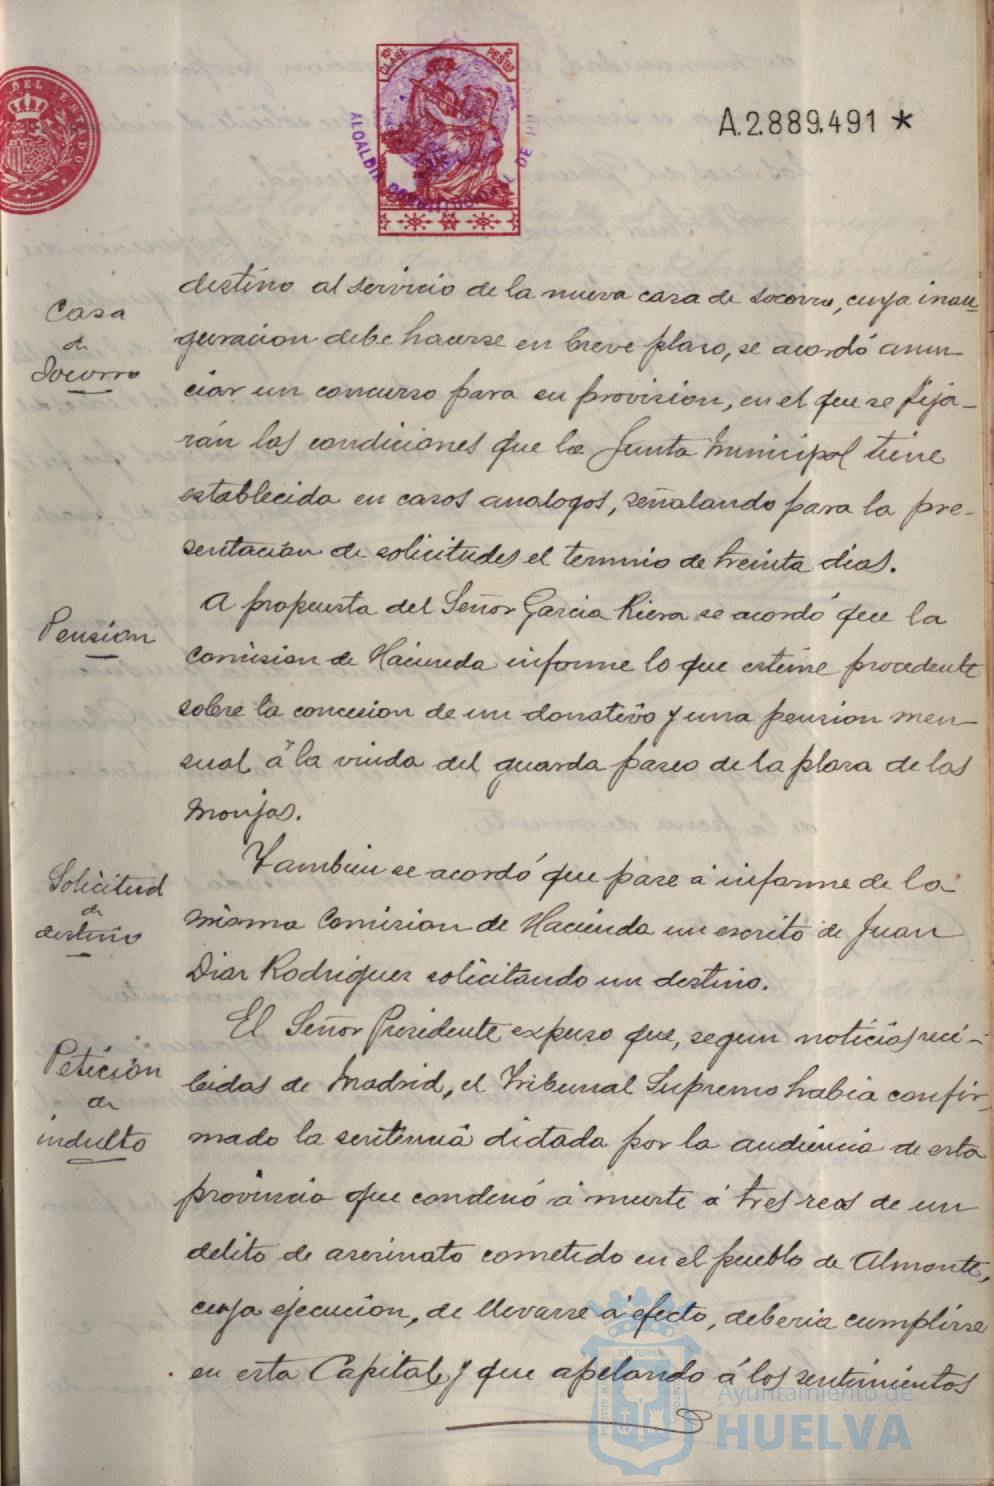 DEL ESTADO
10ª CLASE 2 PESTAS
ALCALDIA CONSTITUCIONAL DE
A.2.889.491 *
Casa
de
Socorro
destino al servicio de la nueva casa de socorro, cuya inau-
guracion debe hacerse en breve plazo, se acordó anun
ciar un concurso para su provision, en el que se fija-
rán las condiciones que la Junta Municipal tiene
establecida en casos analogos, señalando para la pre-
sentacion de solicitudes el termino de treinta dias.
Pensión
A propuesta del Señor Garcia Riera se acordó que la
Comision de Hacienda informe lo que estime procedente
sobre la concesion de un donativo y una pension men-
sual á la viuda del guarda paseo de la plaza de las
Monjas.
Solicitud
de
destino
Tambien se acordó que pase á informe de la
misma Comision de Hacienda un escrito de Juan
Diaz Rodriguez solicitando un destino.
Petición
de
indulto
El Señor Presidente expuso que, segun noticias reci-
bidas de Madrid, el Tribunal Supremo habia confir-
mado la sentencia dictada por la audiencia de esta
provincia que condenó á muerte á tres reos de un
delito de asesinato cometido en el pueblo de Almonte,
cuya ejecucion, de llevarse á efecto, deberia cumplirse
en esta Capital, y que apelando á los sentimientos
Ayuntamiento de
HUELVA